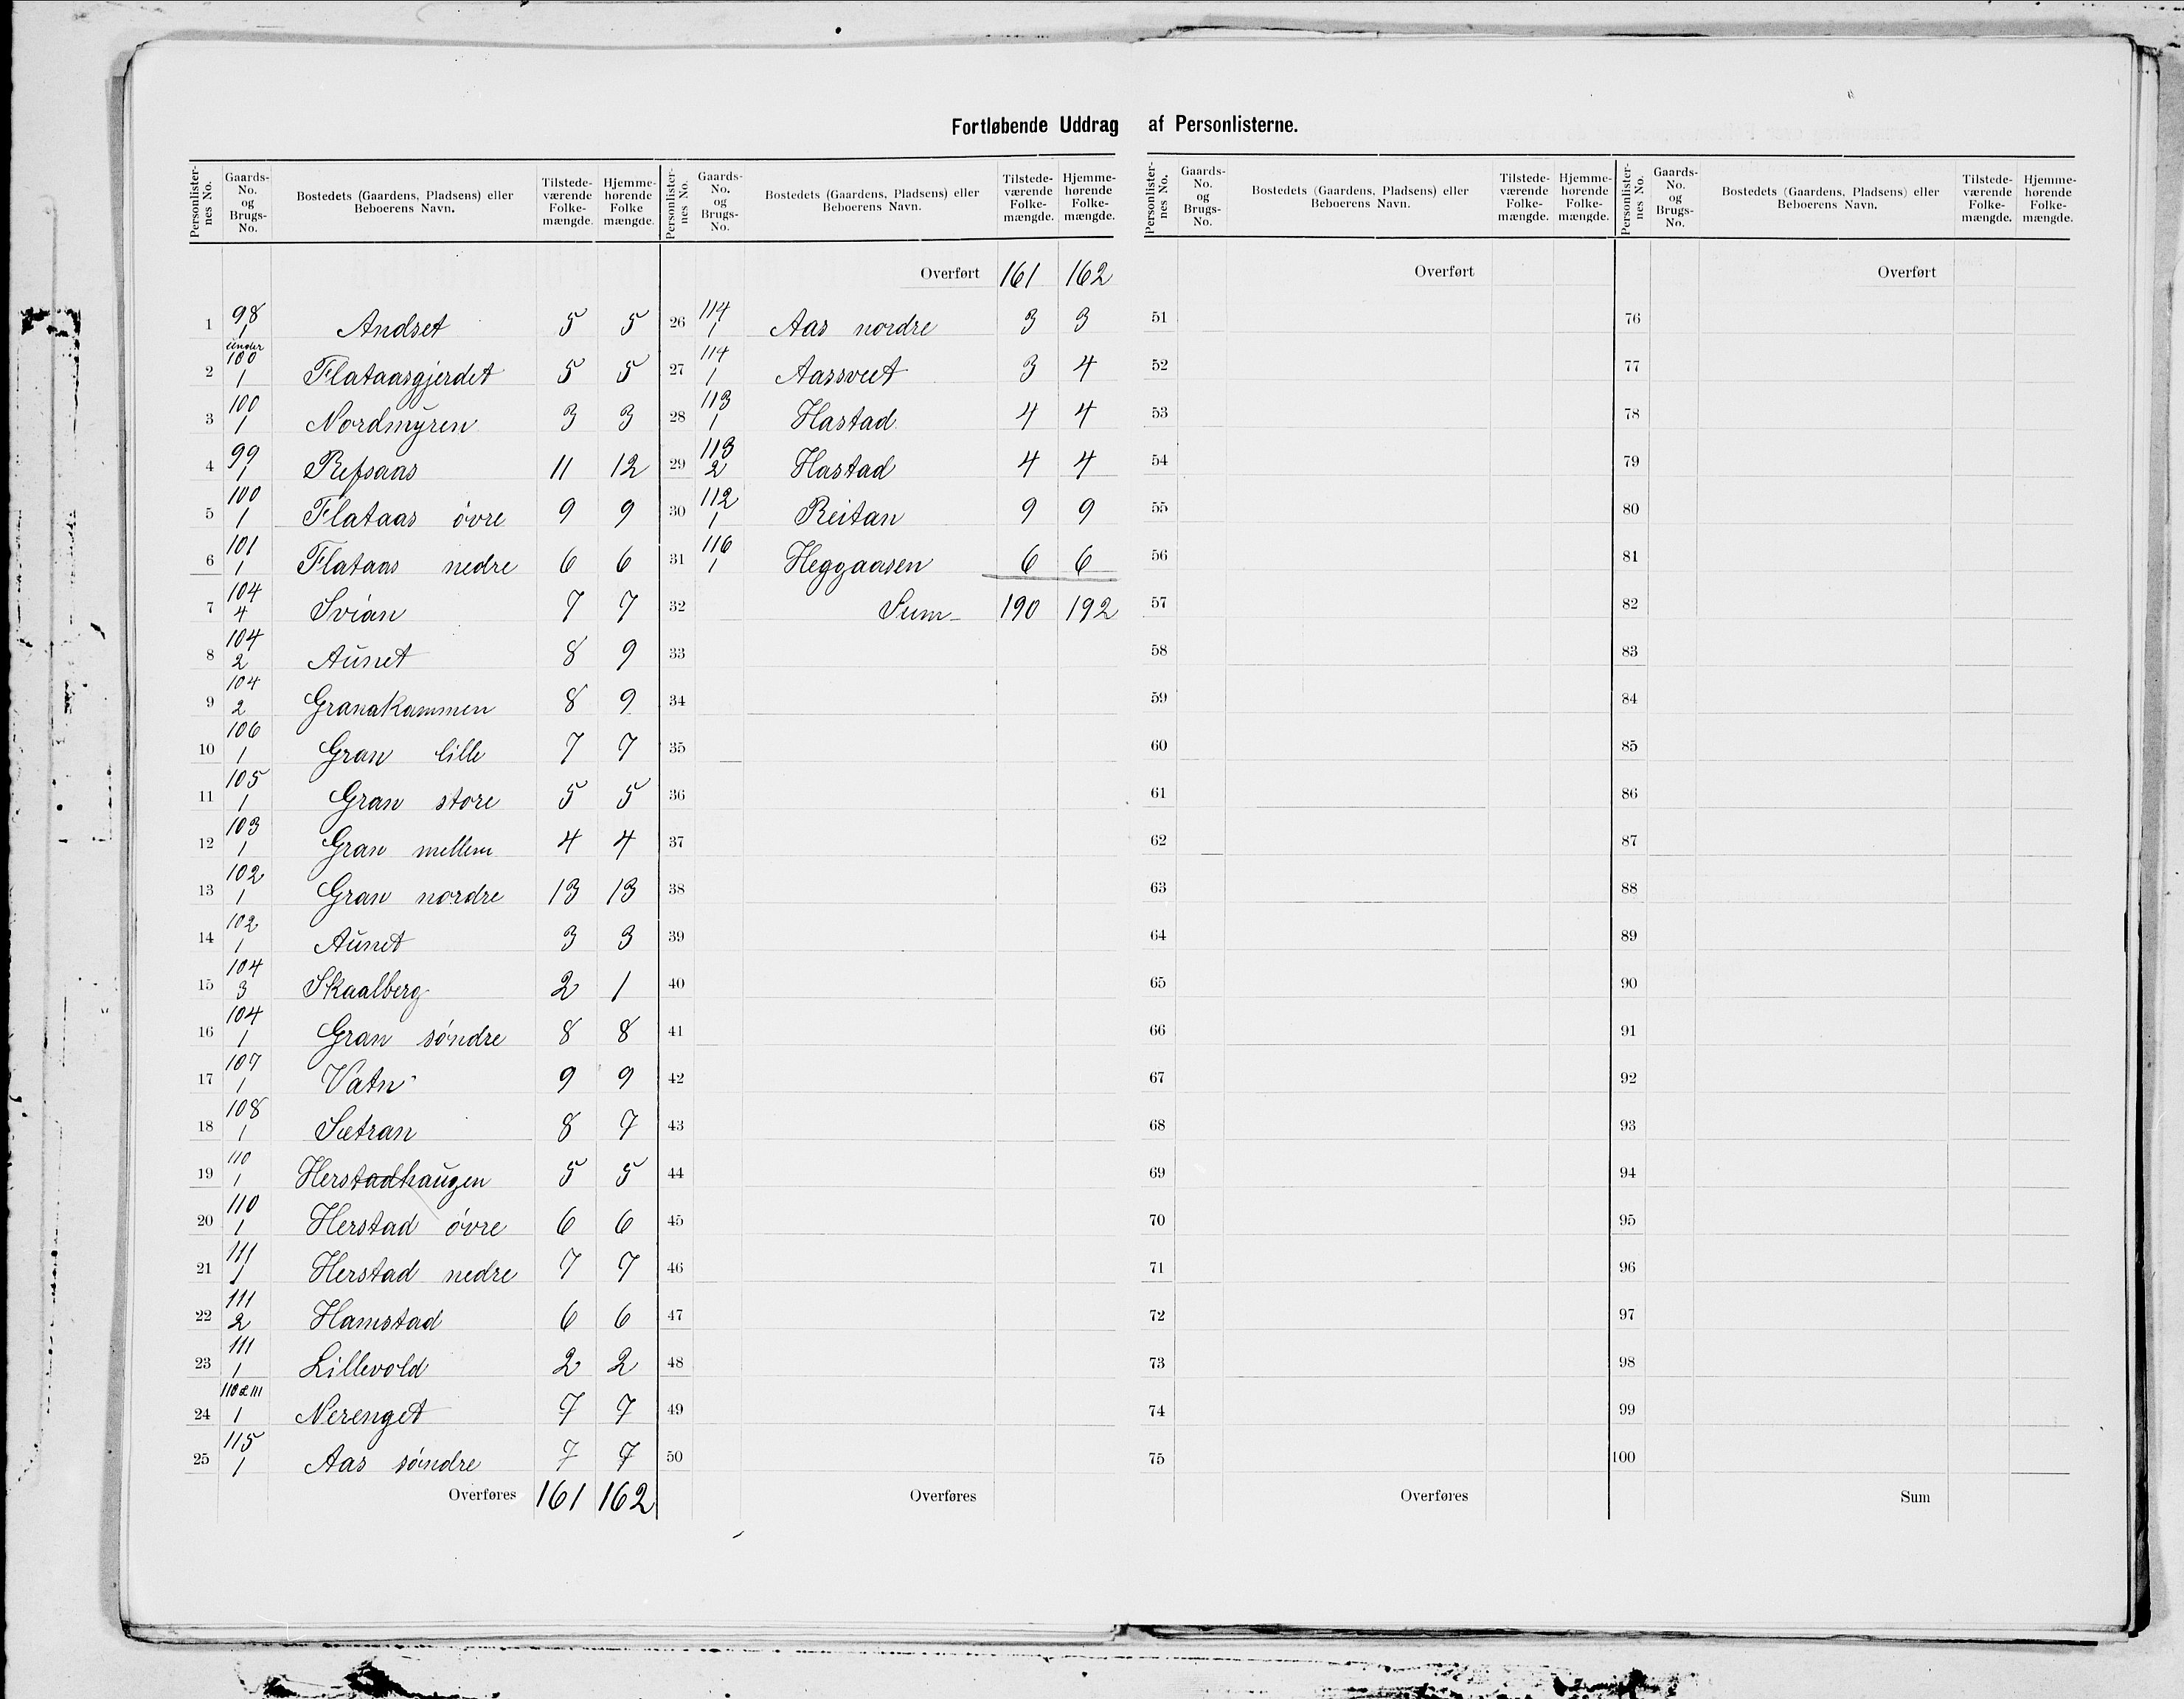 Fortløbende Uddrag af Personlisterne.
Personlister-nes No. Gaards-No. og Brugs-No. Bostedets (Gaardens, Pladsens) eller Beboerens Navn. Tilstede-værende Folke-mængde. Hjemme-hørende Folke mængde.
1 98 1 Andset 5 5
2 under 100 1 Flataasgjerdet 5 5
3 100 1 Nordmyren 3 3
4 99 1 Refsaas 11 12
5 100 1 Flataas övre 9 9
6 101 1 Flataas nedre 6 6
7 104 4 Svian 7 7
8 104 2 Aunet 8 9
9 104 2 Granakammen 8 9
10 106 1 Gran lille 7 7
11 105 1 Gran store 5 5
12 103 1 Gran mellem 4 4
13 102 1 Gran nordre 13 13
14 102 1 Aunet 3 3
15 104 3 Skaalberg 2 1
16 104 1 Gran söndre 8 8
17 107 1 Vatn 9 9
18 108 1 Sætran 8 7
19 110 1 Herstadhaugen 5 5
20 110 1 Herstad övre 6 6
21 111 1 Herstad nedre 7 7
22 111 2 Hamstad 6 6
23 111 1 Lillevold 2 2
24 110 & 111 1 Nerenget 7 7
25 115 1 Aas söndre 7 7
Overføres 161 162
Personlister-nes No. Gaards-No. og Brugs-No. Bostedets (Gaardens, Pladsens) eller Beboerens Navn. Tilstede-værende Folke-mængde. Hjemme-hørende Folke-mængde.
Overført 161 162
26 114 1 Aas nordre 3 3
27 114 1 Aassveet 3 4
28 113 1 Hastad 4 4
29 113 2 Hastad 4 4
30 112 1 Reitan 9 9
31 116 1 Heggaasen 6 6
32 Sum 190 192
33
34
35
36
37
38
39
40
41
42
43
44
45
46
47
48
49
50
Overføres
Personlister-nes No. Gaards-No. og Brugs-No. Bostedets (Gaardens, Pladsens) eller Beboerens Navn. Tilstede-værende Folke-mængde. Hjemme-hørende Folke-mængde.
Overført
51
52
53
54
55
56
57
58
59
60
61
62
63
64
65
66
67
68
69
70
71
72
73
74
75
Overføres
Personlister-nes No. Gaards-No. og Brugs-No. Bostedets (Gaardens, Pladsens) eller Beboerens Navn. Tilstede-værende Folke-mængde. Hjemme-hørende Folke-mængde.
Overført
76
77
78
79
80
81
82
83
84
85
86
87
88
89
90
91
92
93
94
95
96
97
98
99
100
Sum